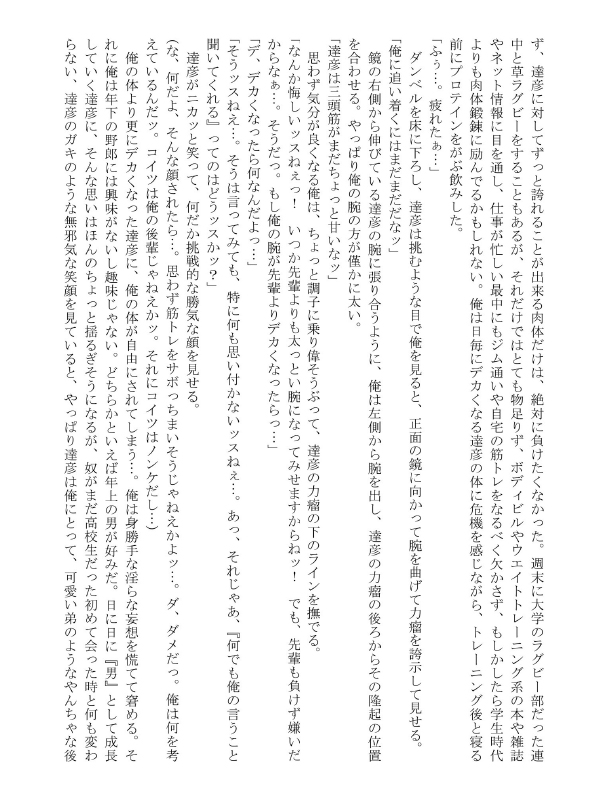 ず、達彦に対してずっと誇れることが出来る肉体だけは、絶対に負けたくなかった。週末に大学のラグビー部だった連
中と草ラグビーをすることもあるが、それだけではとても物足りず、ボディビルやウエイトトレーニング系の本や雑誌
やネット情報に目を通し、仕事が忙しい最中にもジム通いや自宅の筋トレをなるべく欠かさず、もしかしたら学生時代
よりも肉体鍛錬に励んでるかもしれない。俺は日毎にデカくなる達彦の体に危機を感じながら、トレーニング後と寝る
前にプロテインをがぶ飲みした。
「ふぅ…。疲れたぁ…」
ダンベルを床に下ろし、達彦は挑むような目で俺を見ると、正面の鏡に向かって腕を曲げて力瘤を誇示して見せる。
「俺に追い着くにはまだまだだなッ」
鏡の右側から伸びている達彦の腕に張り合うように、俺は左側から腕を出し、達彦の力瘤の後ろからその隆起の位置
を合わせる。やっぱり俺の腕の方が僅かに太い。
「達彦は三頭筋がまだちょっと甘いなッ」
思わず気分が良くなる俺は、ちょっと調子に乗り偉そうぶって、達彦の力瘤の下のラインを撫でる。
「なんか悔しいッスねぇっ！　いつか先輩よりも太っとい腕になってみせますからねッ！　でも、先輩も負けず嫌いだ
からなぁ…。そうだっ。もし俺の腕が先輩よりデカくなったらっ…」
「デ、デカくなったら何なんだよっ…」
「そうッスねえ…。そうは言ってみても、特に何も思い付かないッスねぇ…。あっ、それじゃあ、『何でも俺の言うこと
聞いてくれる』ってのはどうッスかッ？」
達彦がニカッと笑って、何だか挑戦的な勝気な顔を見せる。
（な、何だよ、そんな顔されたら…。思わず筋トレをサボっちまいそうじゃねえかよッ…。ダ、ダメだっ。俺は何を考
えているんだッ。コイツは俺の後輩じゃねえかッ。それにコイツはノンケだし…）
俺の体より更にデカくなった達彦に、俺の体が自由にされてしまう…。俺は身勝手な淫らな妄想を慌てて窘める。そ
れに俺は年下の野郎には興味がないし趣味じゃない。どちらかといえば年上の男が好みだ。日に日に『男』として成長
していく達彦に、そんな思いはほんのちょっと揺るぎそうになるが、奴がまだ高校生だった初めて会った時と何も変わ
らない、達彦のガキのような無邪気な笑顔を見ていると、やっぱり達彦は俺にとって、可愛い弟のようなやんちゃな後